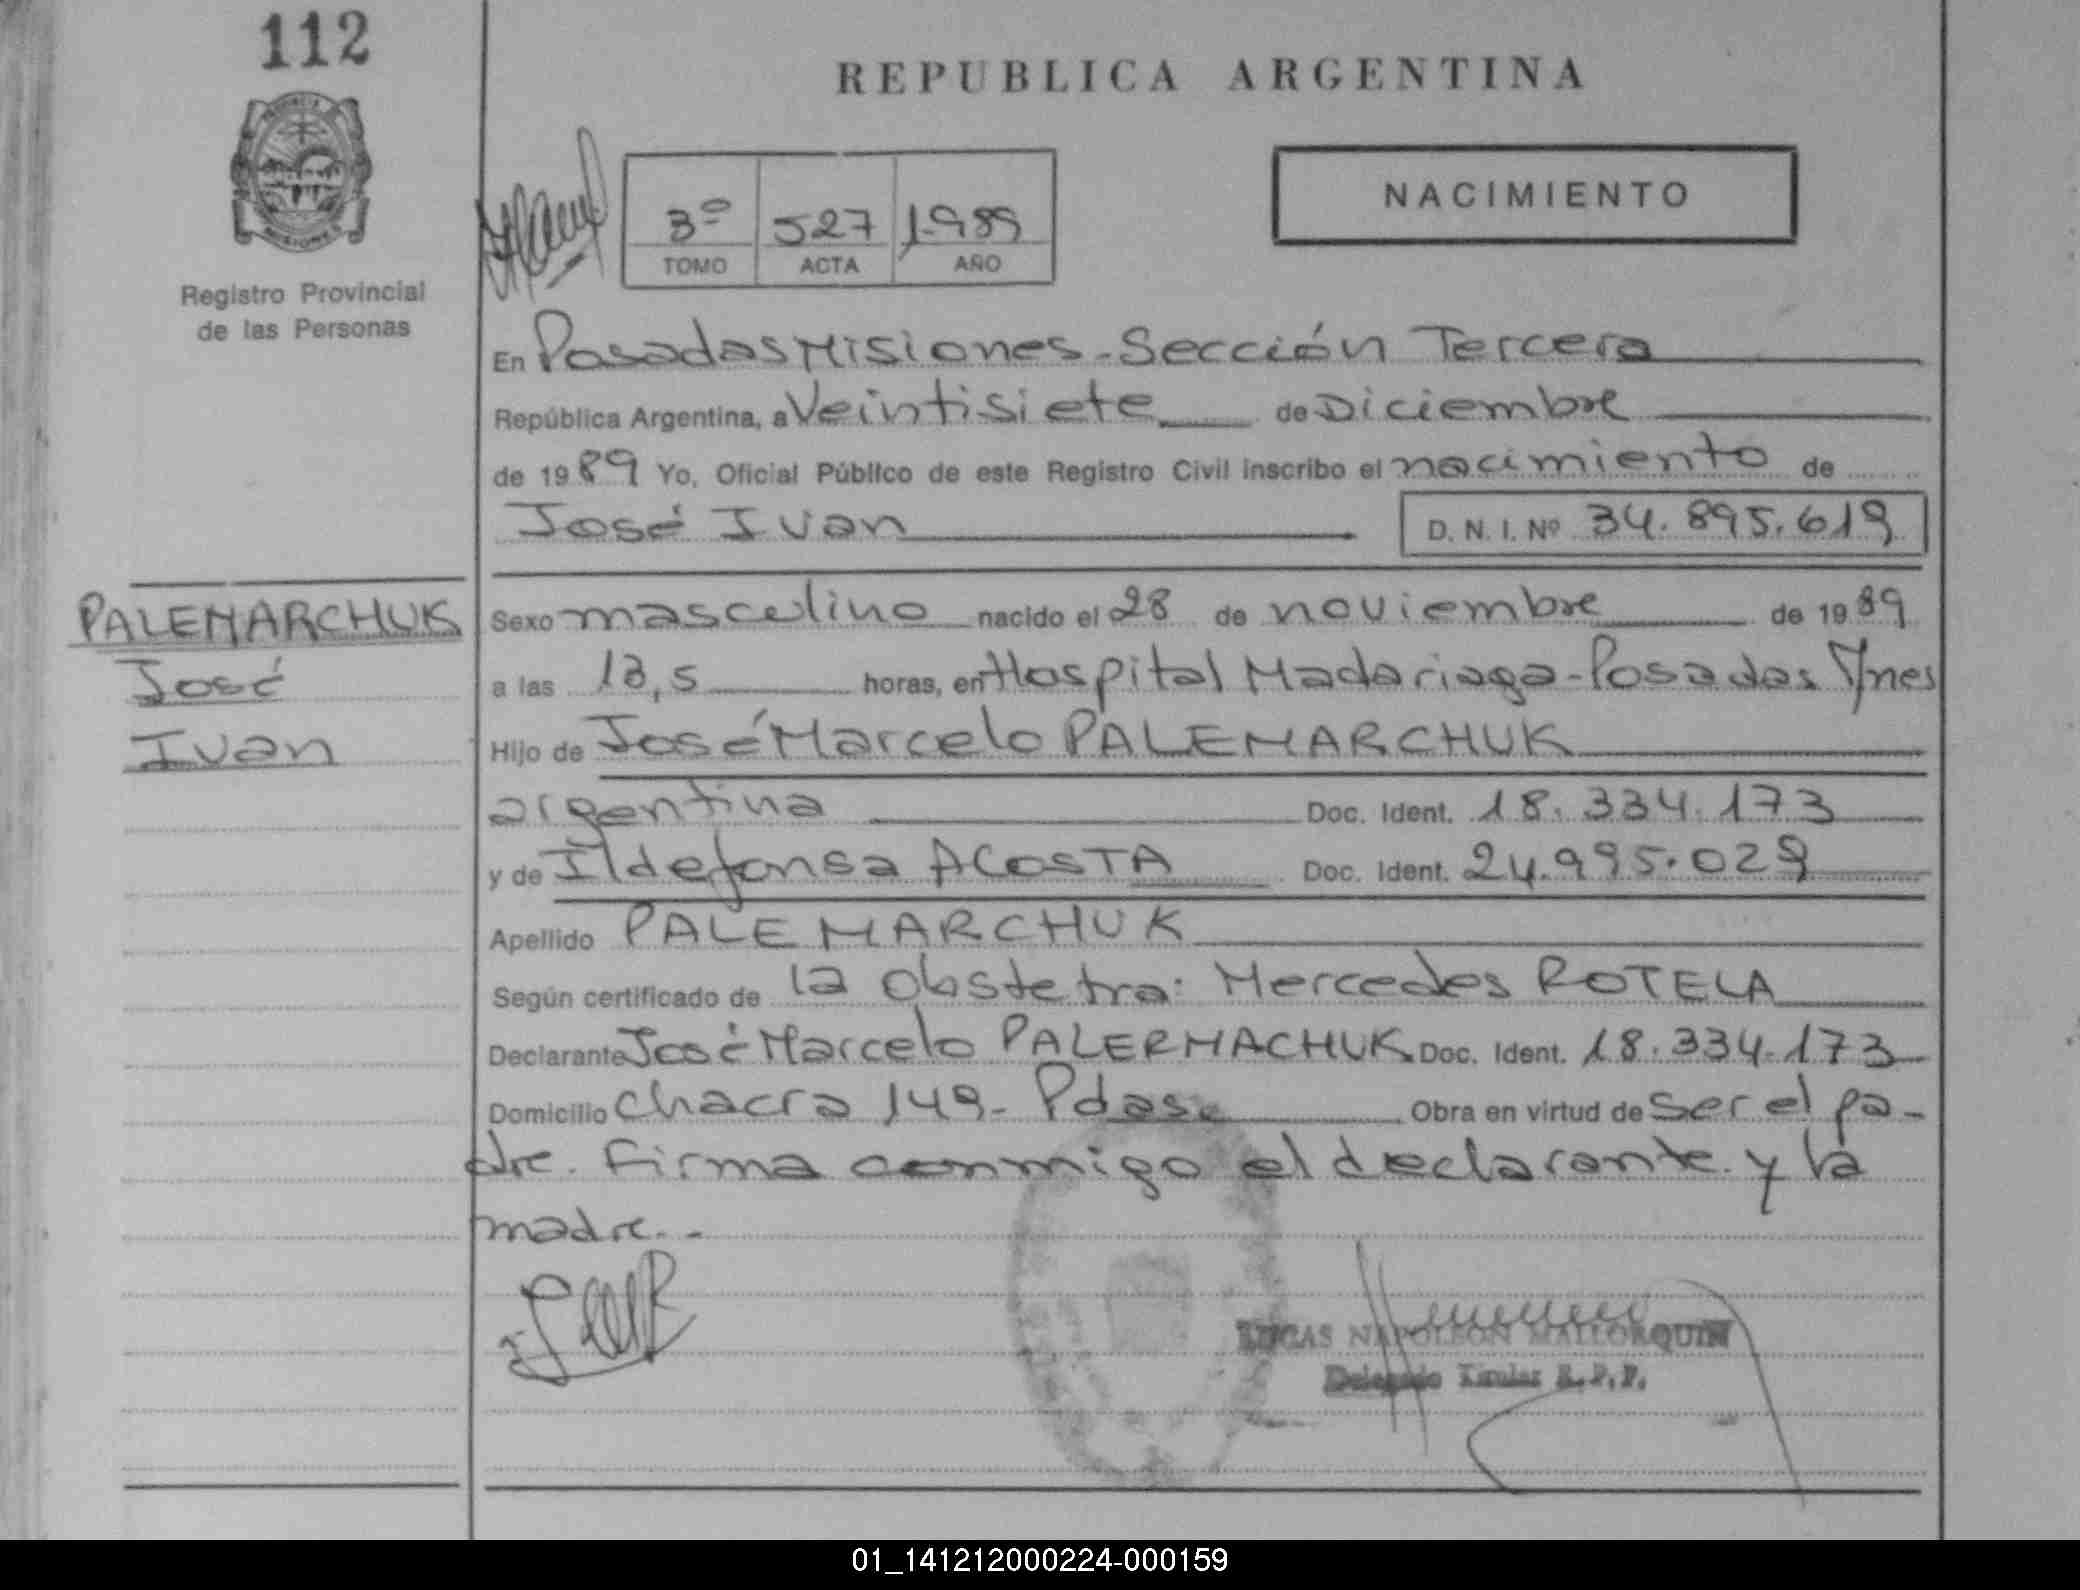 112
REPUBLICA ARGENTINA
PROVINCIA
MISIONES
Registro Provincial
de las Personas
3º 527 1.989
TOMO ACTA AÑO
NACIMIENTO
En Posadas Misiones - Sección Tercera
República Argentina, a Veintisiete de Diciembre
de 1989 Yo, Oficial Público de este Registro Civil inscribo el nacimiento de
José Ivan D. N. I. Nº 34.895.619
PALEMARCHUK
José
Ivan
Sexo masculino nacido el 28 de noviembre de 1989
a las 13,5 horas, en Hospital Madariaga - Posadas Mnes
Hijo de José Marcelo PALEMARCHUK
argentina Doc. Ident. 18.334.173
y de Ildefonsa ACOSTA Doc. Ident. 24.995.029
Apellido PALEMARCHUK
Según certificado de la Obstetra: Mercedes ROTELA
Declarante José Marcelo PALERMACHUK Doc. Ident. 18.334.173
Domicilio Chacra 149 - Pdas. Obra en virtud de ser el pa-
dre. Firma conmigo el declarante y la
madre. -
LUCAS NAPOLEON MALLORQUIN
Delegado Titular R.P.P.
01_141212000224-000159